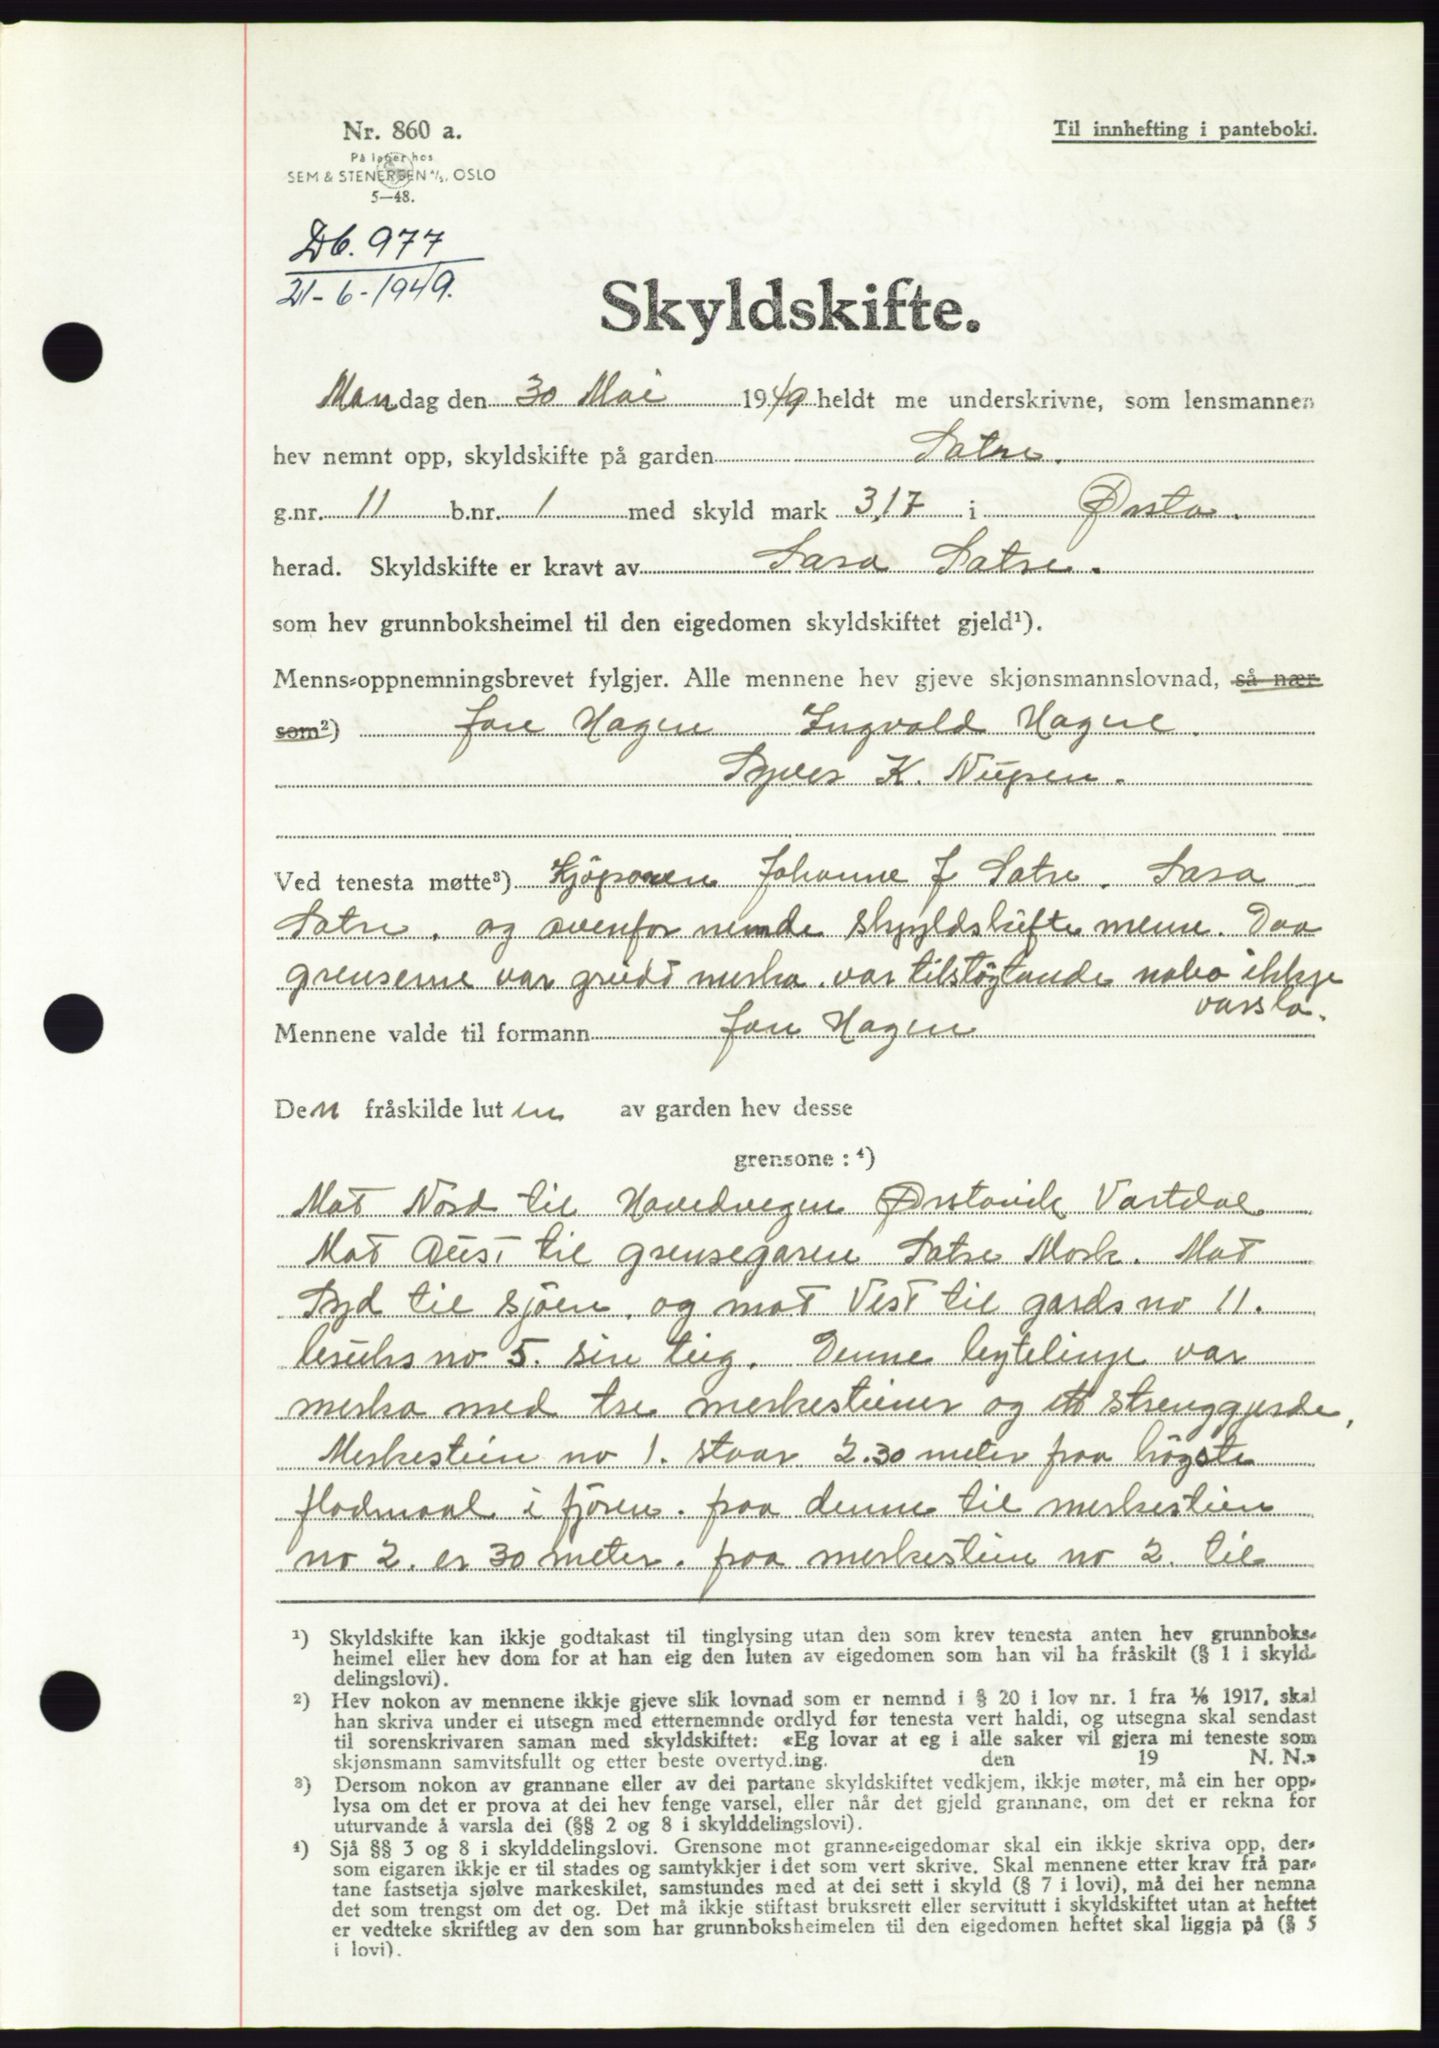 Nr. 860 a.
På lager hos
SEM & STENERSEN A/S, OSLO
5—48.
Til innhefting i panteboki.
Db. 977
21-6-1949.
Skyldskifte.
Mandag den 30 Mai 1949 heldt me underskrivne, som lensmannen
hev nemnt opp, skyldskifte på garden Satre.
g.nr. 11 b.nr. 1 med skyld mark 3,17 i Ørsta.
herad. Skyldskifte er kravt av Sara Satre.
som hev grunnboksheimel til den eigedomen skyldskiftet gjeld¹).
Menns-oppnemningsbrevet fylgjer. Alle mennene hev gjeve skjønsmannslovnad, så nær
som²) Jon Hagen Ingvald Hagen.
Syver K. Nupen.
Ved tenesta møtte³) Kjöparen Johanne J Satre. Sara
Satre. og ovenfor nemde skyldskifte menn. Daa
grenserne var greidt merka. var tilstöytande nabo ikkje
varsla.
Mennene valde til formann Jon Hagen
Den fråskilde luten av garden hev desse
grensone : ⁴)
Mot Nord til Hovedvegen Ørstavik Vartdal
Mot Aust til grensegaren Satre Mork. Mot
Syd til sjöen. og mot Vest til gards no 11.
bruks no 5. sin teig. Denne bytelinje var
merka med tre merkesteiner og strenggjerde.
Merkestein no 1. staar 2.30 meter fraa högste
flodmaal i fjören. fraa denne til merkestein
no 2. er 30 meter. fraa merkestein no 2. til
¹) Skyldskifte kan ikkje godtakast til tinglysing utan den som krev tenesta anten hev grunnboks-
heimel eller hev dom for at han eig den luten av eigedomen som han vil ha fråskilt (§ 1 i skyld-
delingslovi).
²) Hev nokon av mennene ikkje gjeve slik lovnad som er nemnd i § 20 i lov nr. 1 fra ⅙ 1917, skal
han skriva under ei utsegn med etternemnde ordlyd før tenesta vert haldi, og utsegna skal sendast
til sorenskrivaren saman med skyldskiftet: «Eg lovar at eg i alle saker vil gjera mi teneste som
skjønsmann samvitsfullt og etter beste overtyding. den 19 N. N.»
³) Dersom nokon av grannane eller av dei partane skyldskiftet vedkjem, ikkje møter, må ein her opp-
lysa om det er prova at dei hev fenge varsel, eller når det gjeld grannane, om det er rekna for
uturvande å varsla dei (§§ 2 og 8 i skylddelingslovi).
⁴) Sjå §§ 3 og 8 i skylddelingslovi. Grensone mot granne-eigedomar skal ein ikkje skriva opp, der-
som eigaren ikkje er til stades og samtykkjer i det som vert skrive. Skal mennene etter krav frå par-
tane fastsetja sjølve markeskilet, samstundes med at dei sett i skyld (§ 7 i lovi), må dei her nemna
det som trengst om det og. Det må ikkje stiftast bruksrett eller servitutt i skyldskiftet utan at heftet
er vedteke skriftleg av den som har grunnboksheimelen til den eigedomen heftet skal liggja på (§ 5
i lovi).